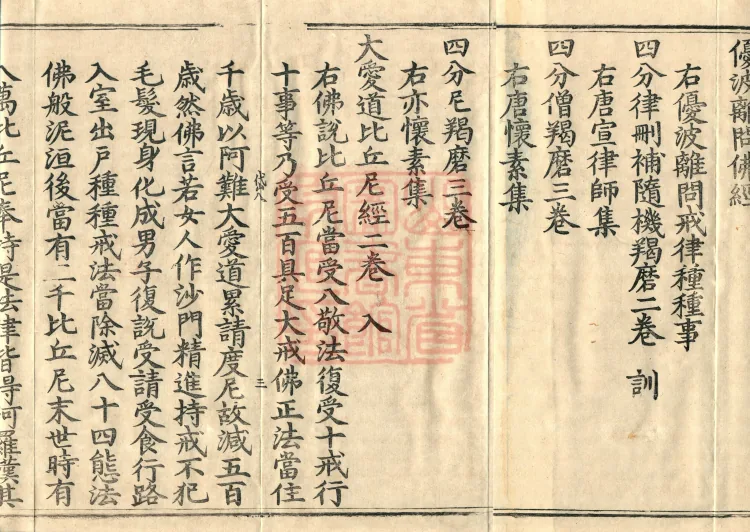 優波離問佛經
右優波離問戒律種種事
四分律刪補隨機羯磨二卷 訓
右唐宣律師集
四分僧羯磨三卷
右唐懷素集
四分尼羯磨三卷
右亦懷素集
大愛道比丘尼經二卷 入
右佛說比丘尼當受八敬法復受十戒行
十事等乃受五百具足大戒佛正法當住
三
千歲以阿難大愛道累請度尼故減五百
歲然佛言若女人作沙門精進持戒不犯
毛髮現身化成男子復說受請受食行路
入室出戶種種戒法當除滅八十四態法
佛般泥洹後當有二千比丘尼末世時有
八萬比丘尼奉持是法律皆得阿羅漢其